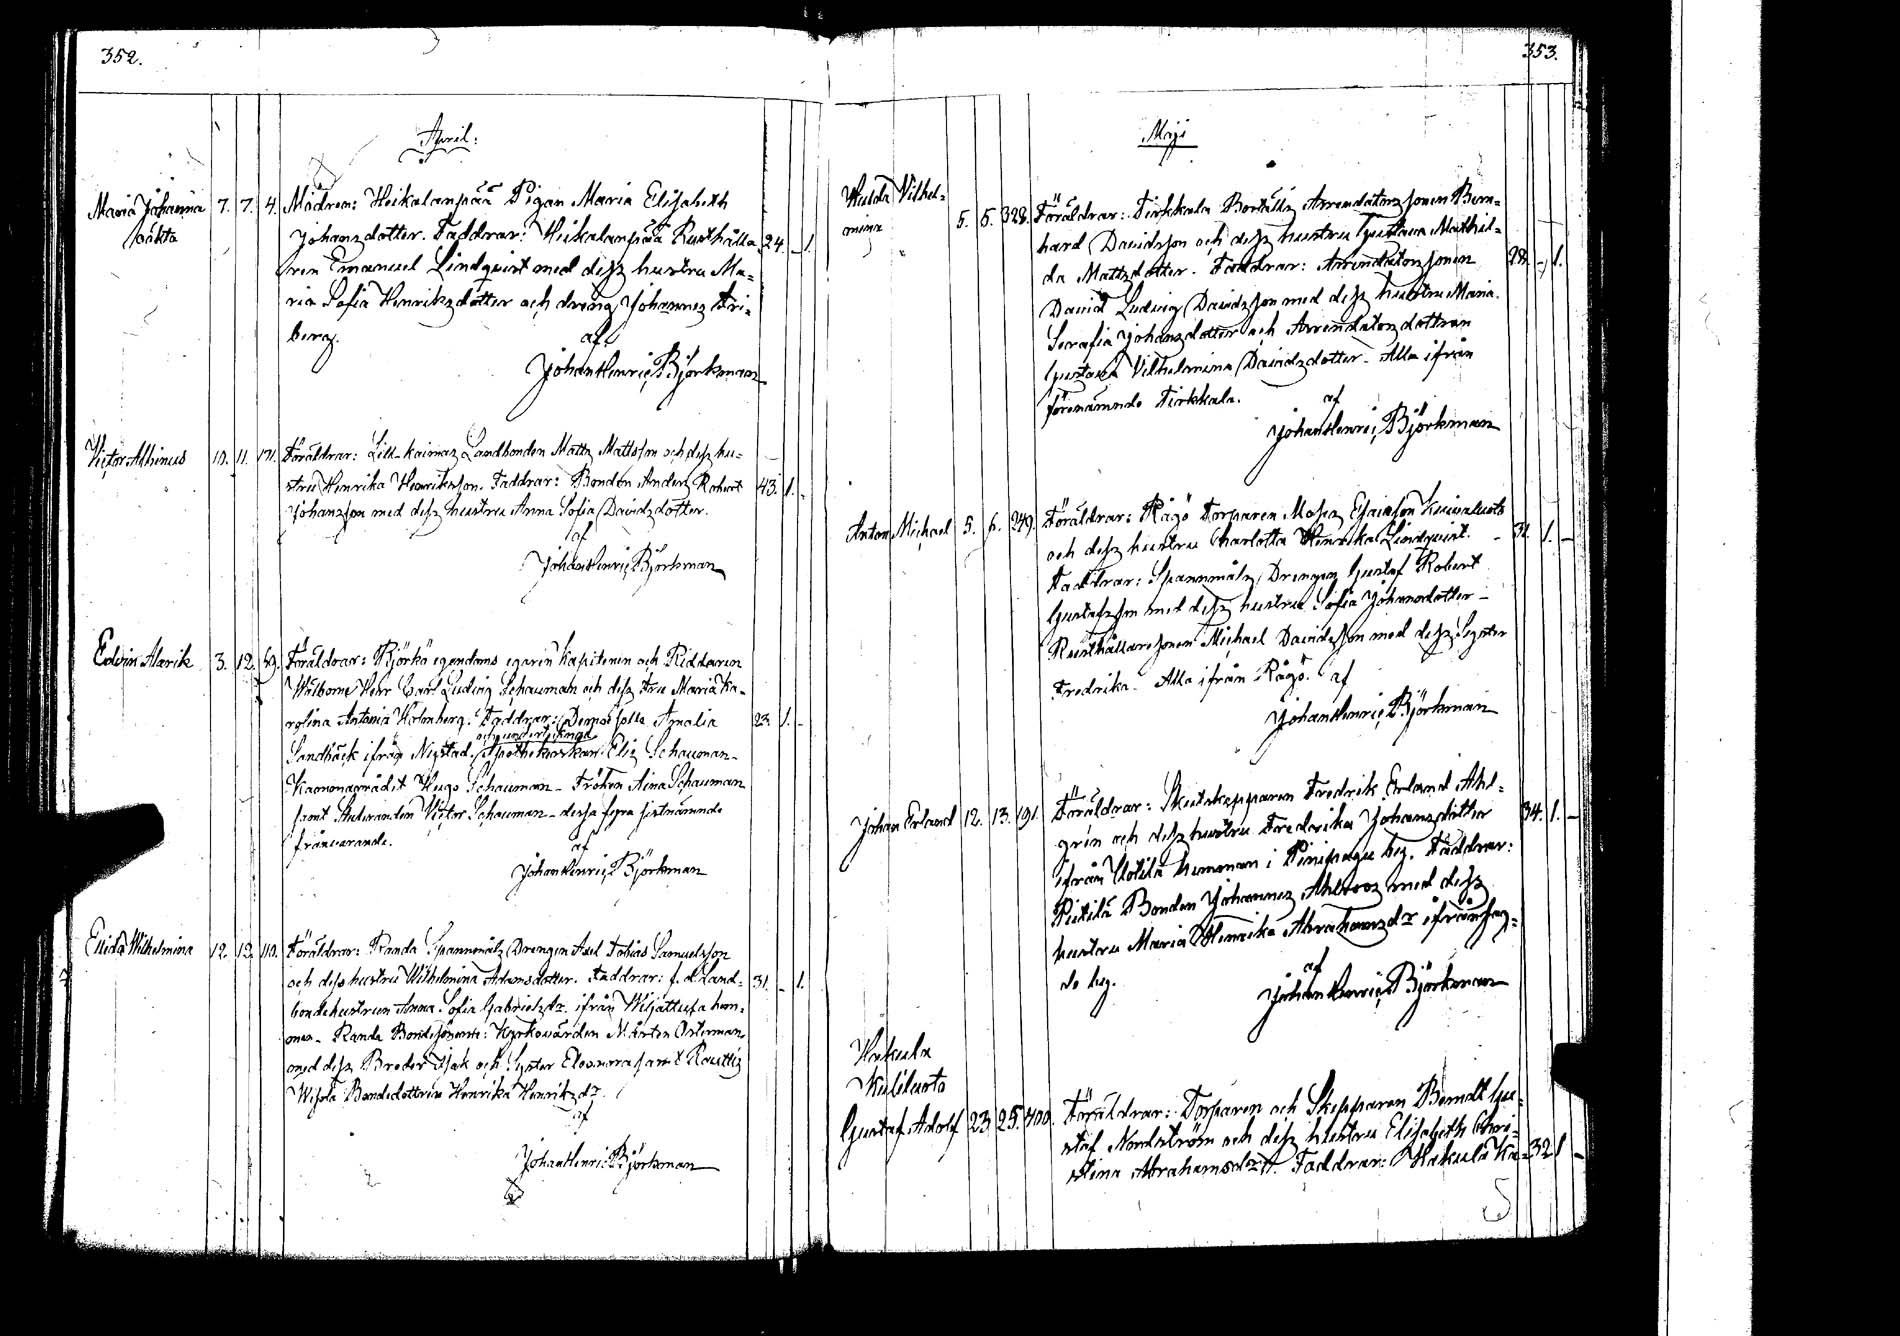 352.
April:
Maria Johanna 7. 7. 4. Modren: Heikalanpää Pigan Maria Elisabeth
oäkta Johansdotter. Faddrar: Heikalanpää Rusthålla- 24. - 1.
ren Emanuel Lindqvist med dess hustru Ma-
ria Sofia Henriksdotter och dreng Johannes Fri-
berg.
af
Johan Henric Björkman
Victor Albinus 10. 11. 171. Föräldrar: Lill-kaimas Landbonden Matts Mattsson och dess hu-
stru Henrika Henriksson. Faddrar: Bonden Anders Robert 43. 1. -
Johansson med dess hustru Anna Sofia Davidsdotter.
af
Johan Henric Björkman
Edvin Alarik 3. 12. 69. Föräldrar: Björkö egendoms egaren Kapitenen och Riddaren
Wälborne Herr Carl Ludvig Schauman och dess Fru Maria Ka-
rolina Antonia Holmberg. Faddrar: Demoiselle Amalia 23 1. -
Sandbäck ifrån Nystad. Apothekarskan Elis Schauman -
Hugo Schauman - Fröken Aina Schauman
samt Studeranden Victor Schauman - dessa fyra sistnämnde
frånvarande.
af
Johan Henric Björkman
Elida Wilhelmina 12. 13. 110. Föräldrar: Randa Spannmåls Drengen Axel Tobias Samuelsson
och dess hustru Wilhelmina Adamsdotter. Faddrar: f. d. Land- 31. - 1.
bondehustrun Anna Sofia Gabrielsdr. ifrån hem-
man - Randa Bondesönerne: Kyrkovärden Mårten Österman
med dess Broder Isak och Syster Eleonora samt
Bondedottren Henrika Henriksdr.
af
Johan Henric Björkman
353.
Maji
Hulda Vilhel-
mina 5. 5. 328. Föräldrar: Tirkkala Boställs Arrendatorssonen Bern-
hard Davidsson och dess hustru Gustava Mathil-
da Mattsdotter. Faddrar: Arrendatorssonen 28. - 1.
David Ludvig Davidsson med dess hustru Maria
Serafia Johansdotter och Arrendatorsdottren
Gustava Vilhelmina Davidsdotter - Alla ifrån
förenämnde Tirkkala.
af
Johan Henric Björkman
Anton Michael 5. 6. 249. Föräldrar: Rågö Torparen Moses Esaiasson
och dess hustru Charlotta Henrika Lindqvist. - 31. 1. -
Faddrar: Spannmåls Drengen Gustaf Robert
Gustafsson med dess hustru Sofia Johansdotter -
Rusthållaresonen Michael Davidsson med dess Syster
Fredrika - Alla ifrån Rågö. af
Johan Henric Björkman
Johan Erland 12. 13. 191. Föräldrar: Skutskepparen Fredrik Erland Ahl- 34. 1. -
grén och dess hustru Fredrika Johansdotter
ifrån hemman i by. Faddrar:
Bonden Johannes Ahlroos med dess
hustru Maria Henrika Abrahamsdr ifrån sag-
de by.
af
Johan Henric Björkman
Hakula
Kuliluoto
Gustaf Adolf 23 25. 400. Föräldrar: Torparen och Skepparen Berndt Gu-
staf Nordström och dess hustru Elisabeth Chri-
stina Abrahamsdr. Faddrar: Hakula Ka- 32 1 -